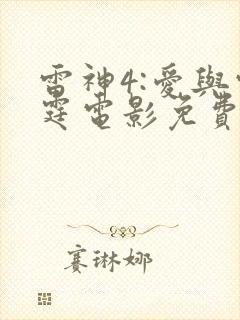 雷神4:愛與
霆電影免費
賽琳娜